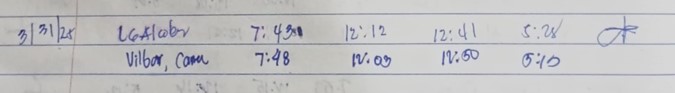 3/31/25 7:43 12:12 12:41 5:28
Vilbar, 7:48 12:03 12:50 5:10